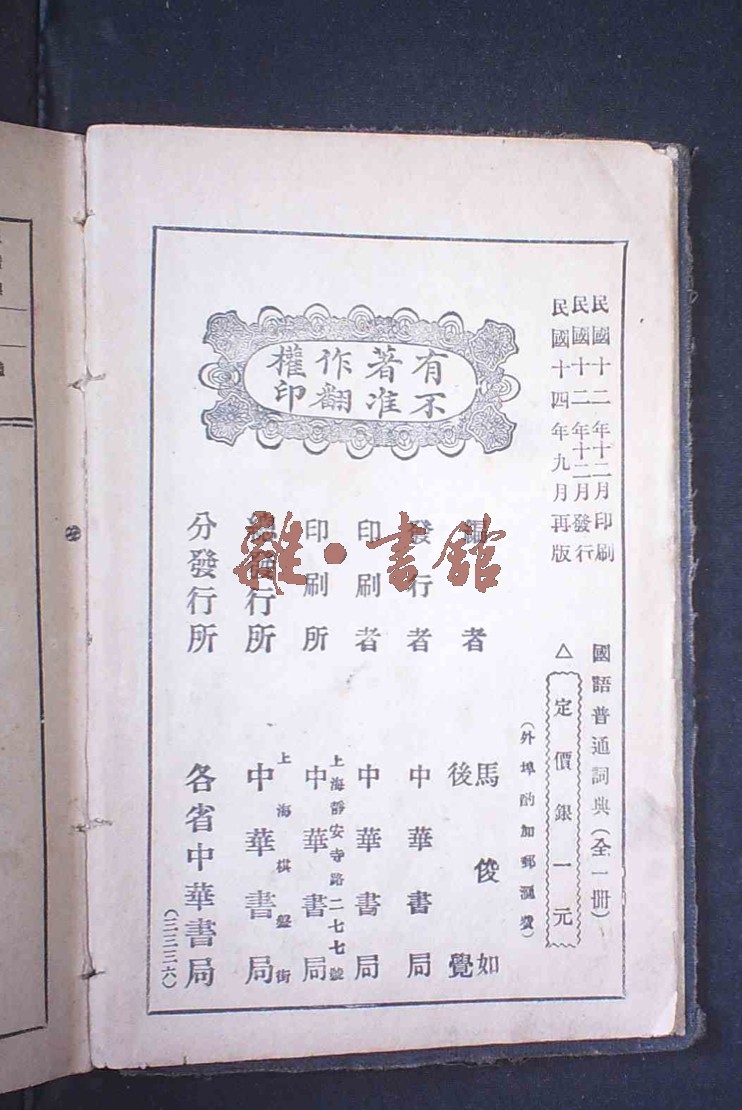 民國十二年十二月印刷
民國十二年十二月發行
民國十四年九月再版
國語普通詞典(全一册)
△定價銀一元
(外埠酌加郵滙費)
有不
著准
作翻
權印
編者
馬俊如
後覺
發行者
中華書局
印刷者
中華書局
印刷所
上海靜安寺路二七七號
中華書局
總發行所
上海棋盤街
中華書局
分發行所
各省中華書局
(二三三六)
雜·書館